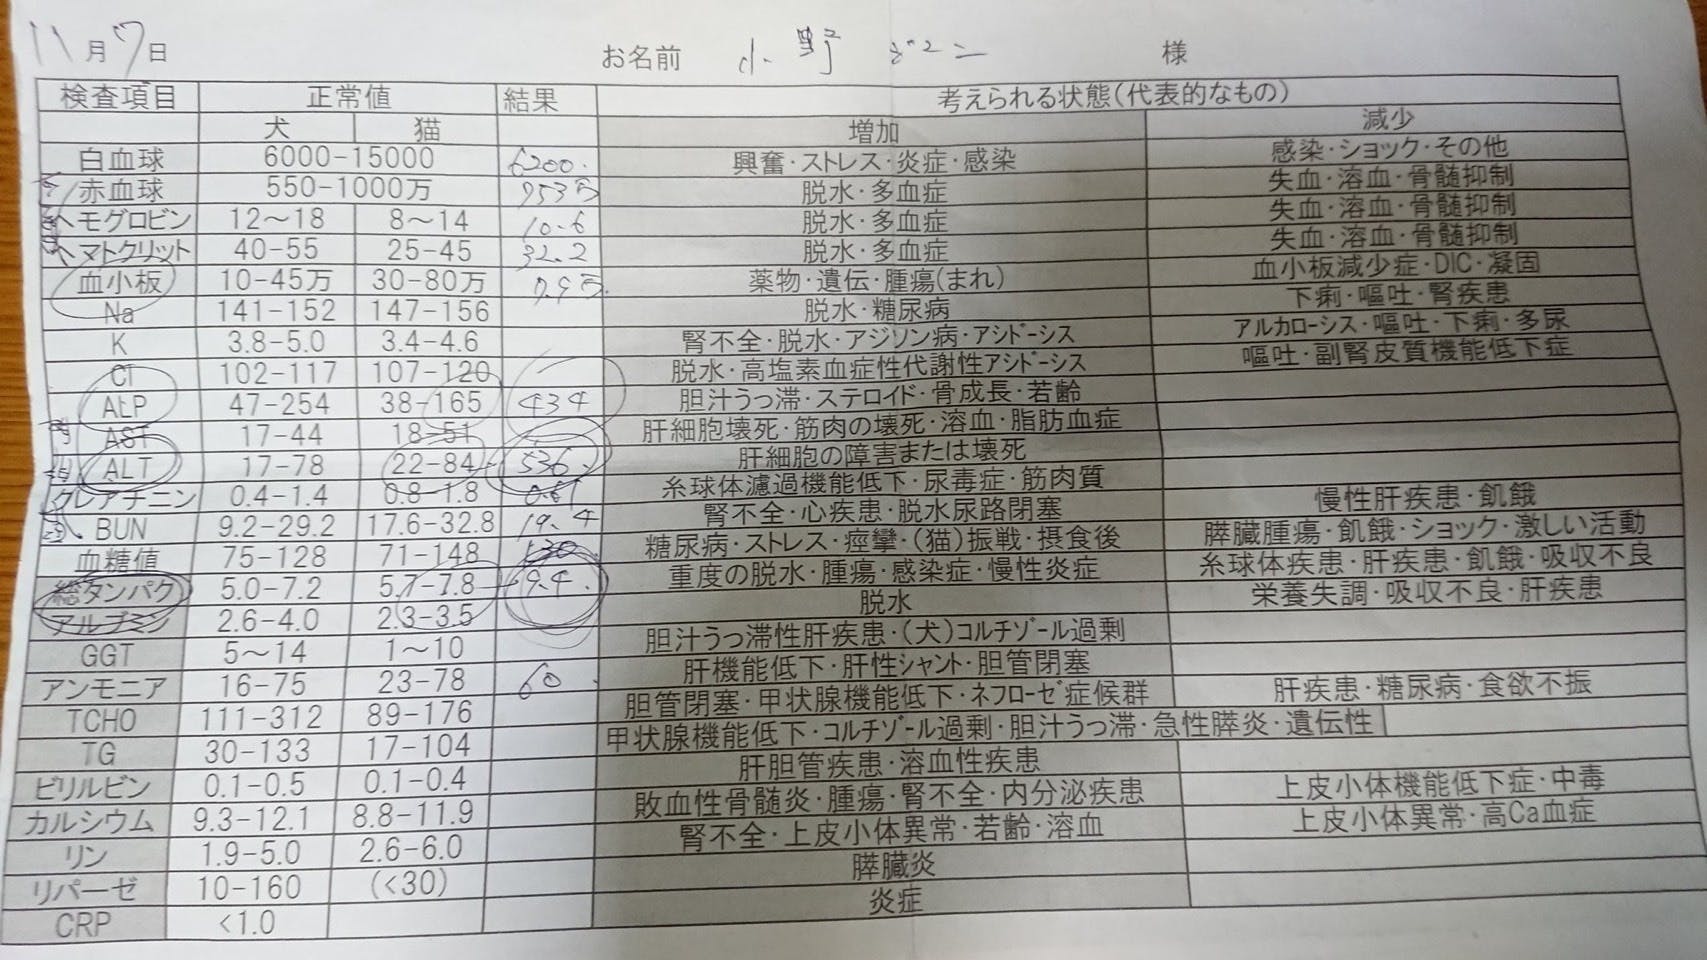 11月7日 お名前 小野 様
検査項目 正常値 結果 考えられる状態(代表的なもの)
犬 猫 増加 減少
白血球 6000-15000 6200. 興奮・ストレス・炎症・感染 感染・ショック・その他
赤血球 550-1000万 953万 脱水・多血症 失血・溶血・骨髄抑制
ヘモグロビン 12〜18 8〜14 10.6 脱水・多血症 失血・溶血・骨髄抑制
ヘマトクリット 40-55 25-45 32.2 脱水・多血症 失血・溶血・骨髄抑制
血小板 10-45万 30-80万 薬物・遺伝・腫瘍(まれ) 血小板減少症・DIC・凝固
Na 141-152 147-156 脱水・糖尿病 下痢・嘔吐・腎疾患
K 3.8-5.0 3.4-4.6 腎不全・脱水・アジソン病・アシドーシス アルカローシス・嘔吐・下痢・多尿
Cl 102-117 107-120 脱水・高塩素血症性代謝性アシドーシス 嘔吐・副腎皮質機能低下症
ALP 47-254 38-165 434 胆汁うっ滞・ステロイド・骨成長・若齢
AST 17-44 18-51 肝細胞壊死・筋肉の壊死・溶血・脂肪血症
ALT 17-78 22-84 536. 肝細胞の障害または壊死
クレアチニン 0.4-1.4 0.8-1.8 0.61 糸球体濾過機能低下・尿毒症・筋肉質
BUN 9.2-29.2 17.6-32.8 19.4 腎不全・心疾患・脱水尿路閉塞 慢性肝疾患・飢餓
血糖値 75-128 71-148 130 糖尿病・ストレス・痙攣・(猫)振戦・摂食後 膵臓腫瘍・飢餓・ショック・激しい活動
総タンパク 5.0-7.2 5.7-7.8 9.4. 重度の脱水・腫瘍・感染症・慢性炎症 糸球体疾患・肝疾患・飢餓・吸収不良
アルブミン 2.6-4.0 2.3-3.5 脱水 栄養失調・吸収不良・肝疾患
GGT 5〜14 1〜10 胆汁うっ滞性肝疾患・(犬)コルチゾール過剰
アンモニア 16-75 23-78 60. 肝機能低下・肝性シャント・胆管閉塞
TCHO 111-312 89-176 胆管閉塞・甲状腺機能低下・ネフローゼ症候群 肝疾患・糖尿病・食欲不振
TG 30-133 17-104 甲状腺機能低下・コルチゾール過剰・胆汁うっ滞・急性膵炎・遺伝性
ビリルビン 0.1-0.5 0.1-0.4 肝胆管疾患・溶血性疾患
カルシウム 9.3-12.1 8.8-11.9 敗血性骨髄炎・腫瘍・腎不全・内分泌疾患 上皮小体機能低下症・中毒
リン 1.9-5.0 2.6-6.0 腎不全・上皮小体異常・若齢・溶血 上皮小体異常・高Ca血症
リパーゼ 10-160 (<30) 膵臓炎
CRP <1.0 炎症